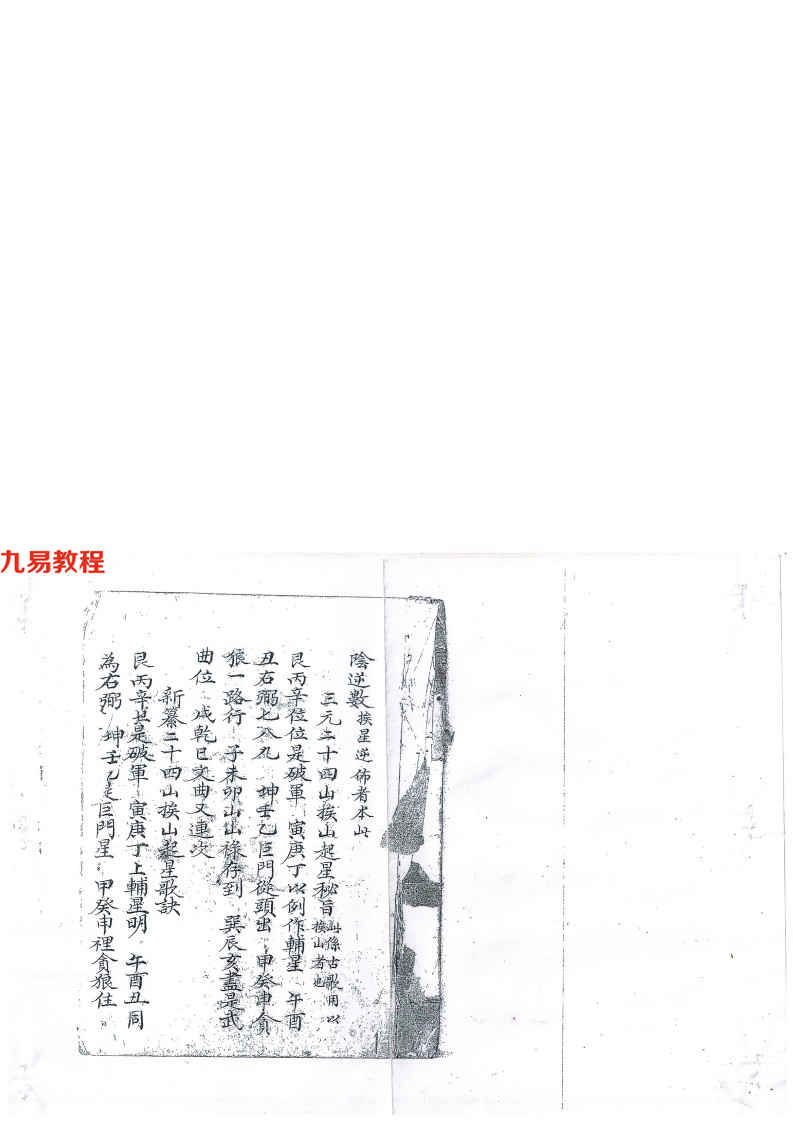 九易教程
陰逆數挨星逆佈者本此
三元二十四山挨山起星秘旨此係古歌用以挨山者也
艮丙辛位位是破軍 寅庚丁以例作輔星 午酉
丑右弼七八九 坤壬乙巨門從頭出 甲癸申貪
狼一路行 子未卯山山祿存到 巽辰亥盡是武
曲位 戌乾巳文曲又連次
新纂二十四山挨山起星歌訣
艮丙辛皆是破軍 寅庚丁上輔星明 午酉丑同
為右弼 坤壬乙是巨門星 甲癸申裡貪狼住